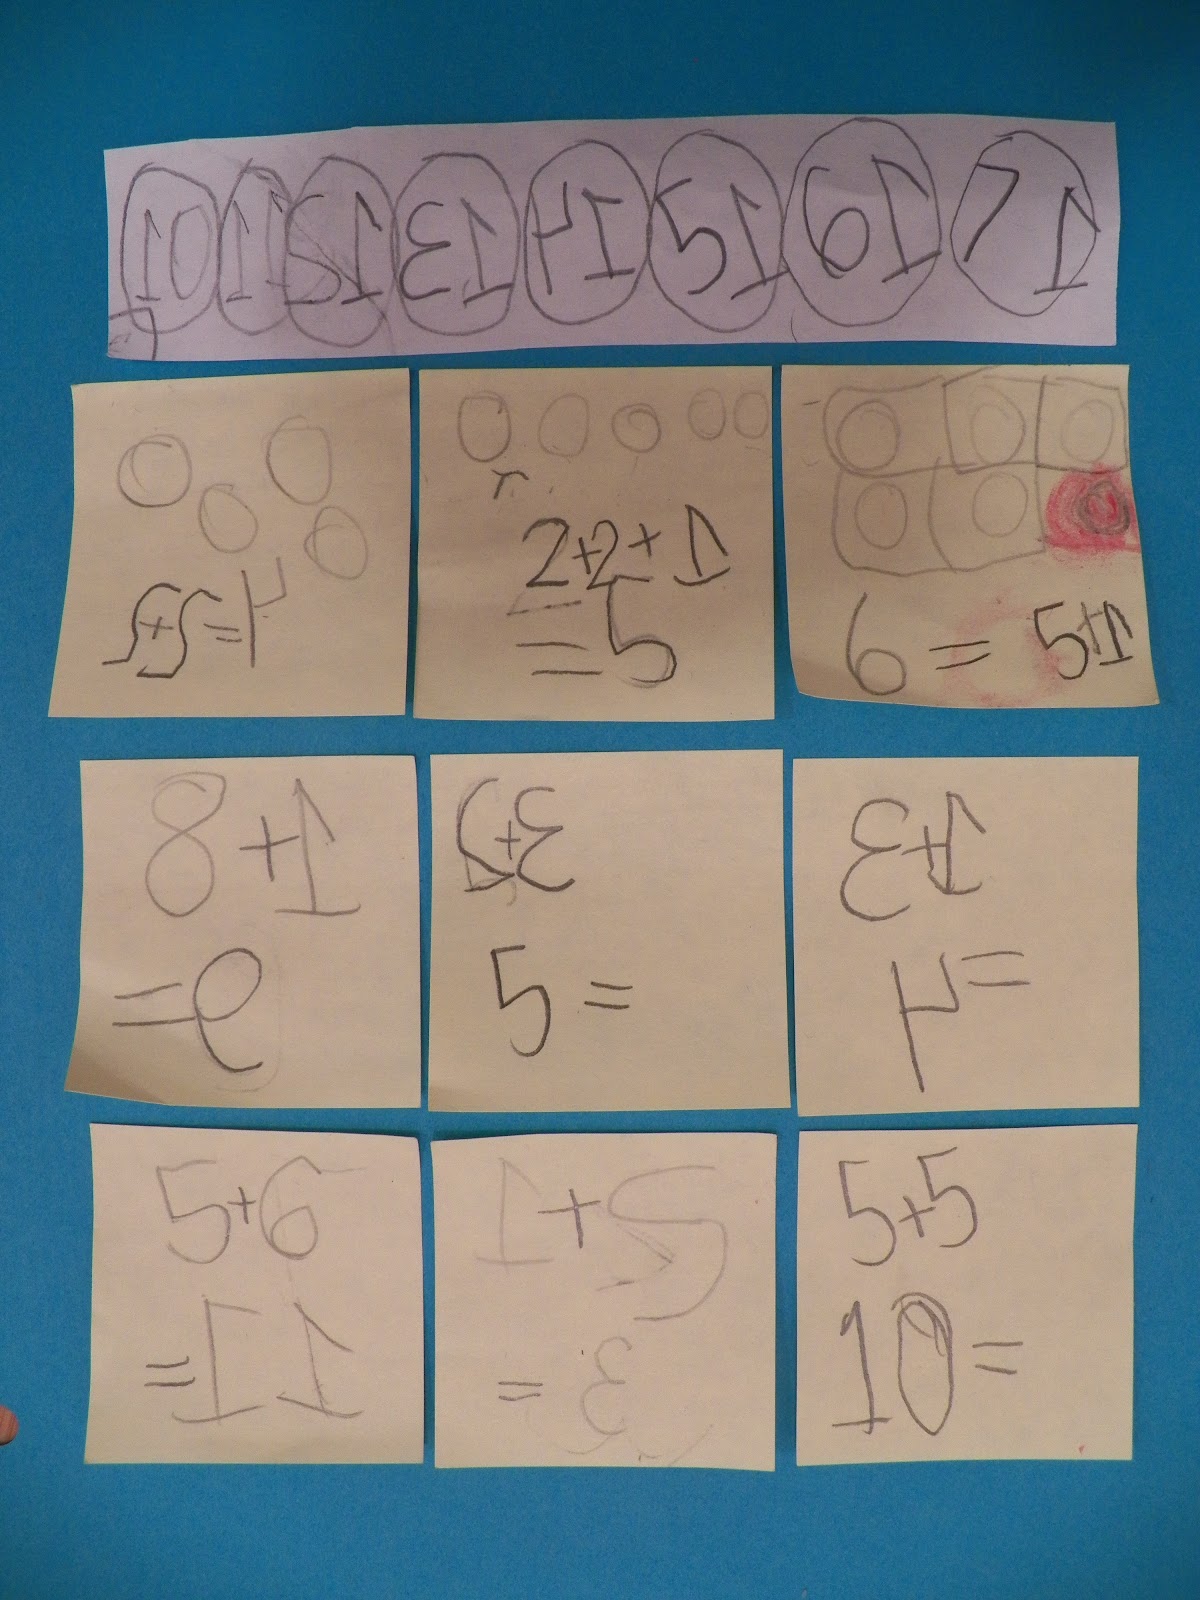 10 11 21 31 41 51 61 71
2+2=4
2+2+1
=5
6 = 5+1
8+1
=9
2+3
5 =
3+1
4=
5+6
=11
1+2
= 3
5+5
10=